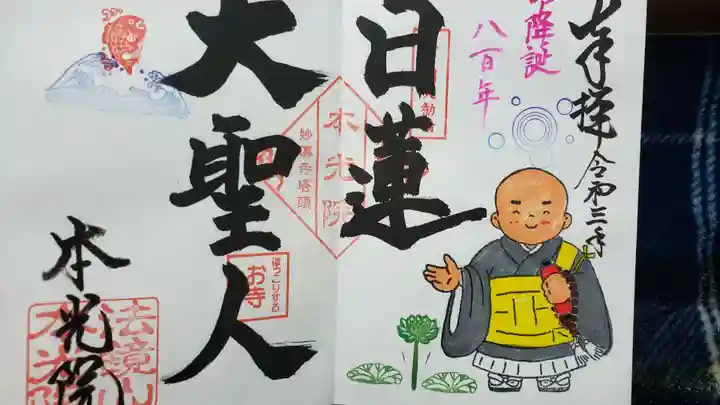 奉拝 令和三年
降誕
八百年
日蓮
大聖人
本光院
妙厳寺塔頭
本光院
ほっこりする
お寺
法鏡山
本光院